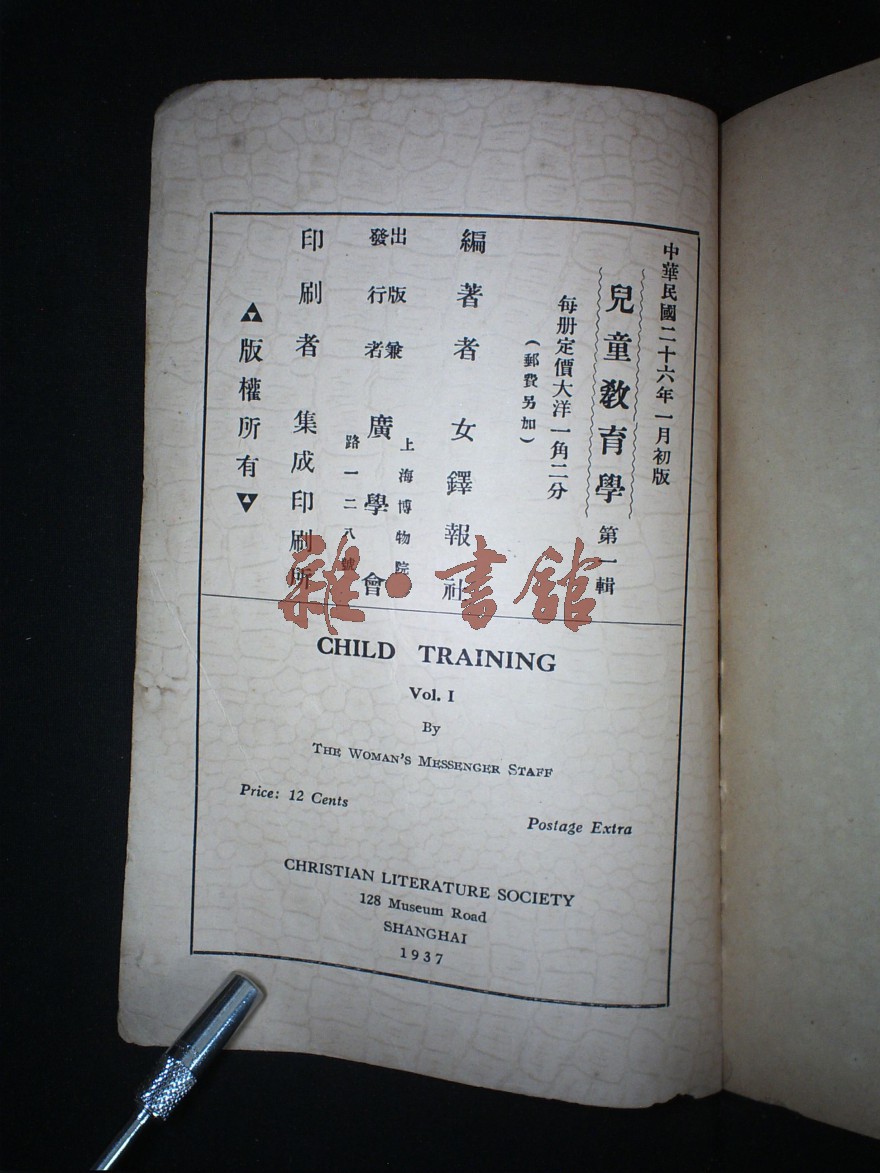 中華民國二十六年一月初版
兒童教育學 第一輯
每册定價大洋一角二分
(郵費另加)
編著者 女鐸報社
出版兼
發行者 廣學會
上海博物院
路一二八號
印刷者 集成印刷所
版權所有
雜·書舘
CHILD TRAINING
Vol. I
By
THE WOMAN'S MESSENGER STAFF
Price: 12 Cents
Postage Extra
CHRISTIAN LITERATURE SOCIETY
128 Museum Road
SHANGHAI
1937